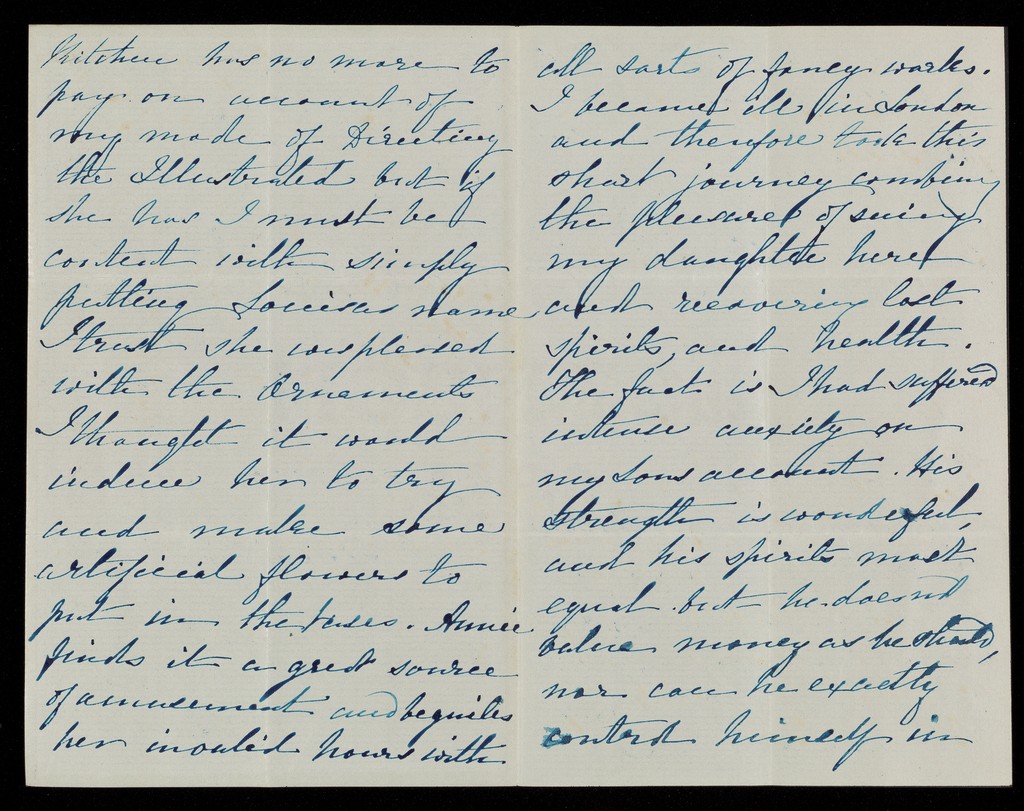 Kitchen has no more to
pay on account of
my mode of Directing
the Illustrated but if
she has I must be
content with simply
putting Louisas name
I trust she was pleased
with the Ornaments
I thought it would
induce her to try
and make some
artificial flowers to
put in the Vases. Annie
finds it a great source
of amusement and beguiles
her invalid hours with
all sorts of fancy works.
I became ill in London
and therefore took this
short journey combining
the pleasure of seeing
my daughter here
and recovering lost
spirits, and health.
The fact is I had suffered
intense anxiety on
my Sons account. His
strength is wonderful,
and his spirits most
equal. but he doesnt
value money as he should,
nor can he exactly
control himself in